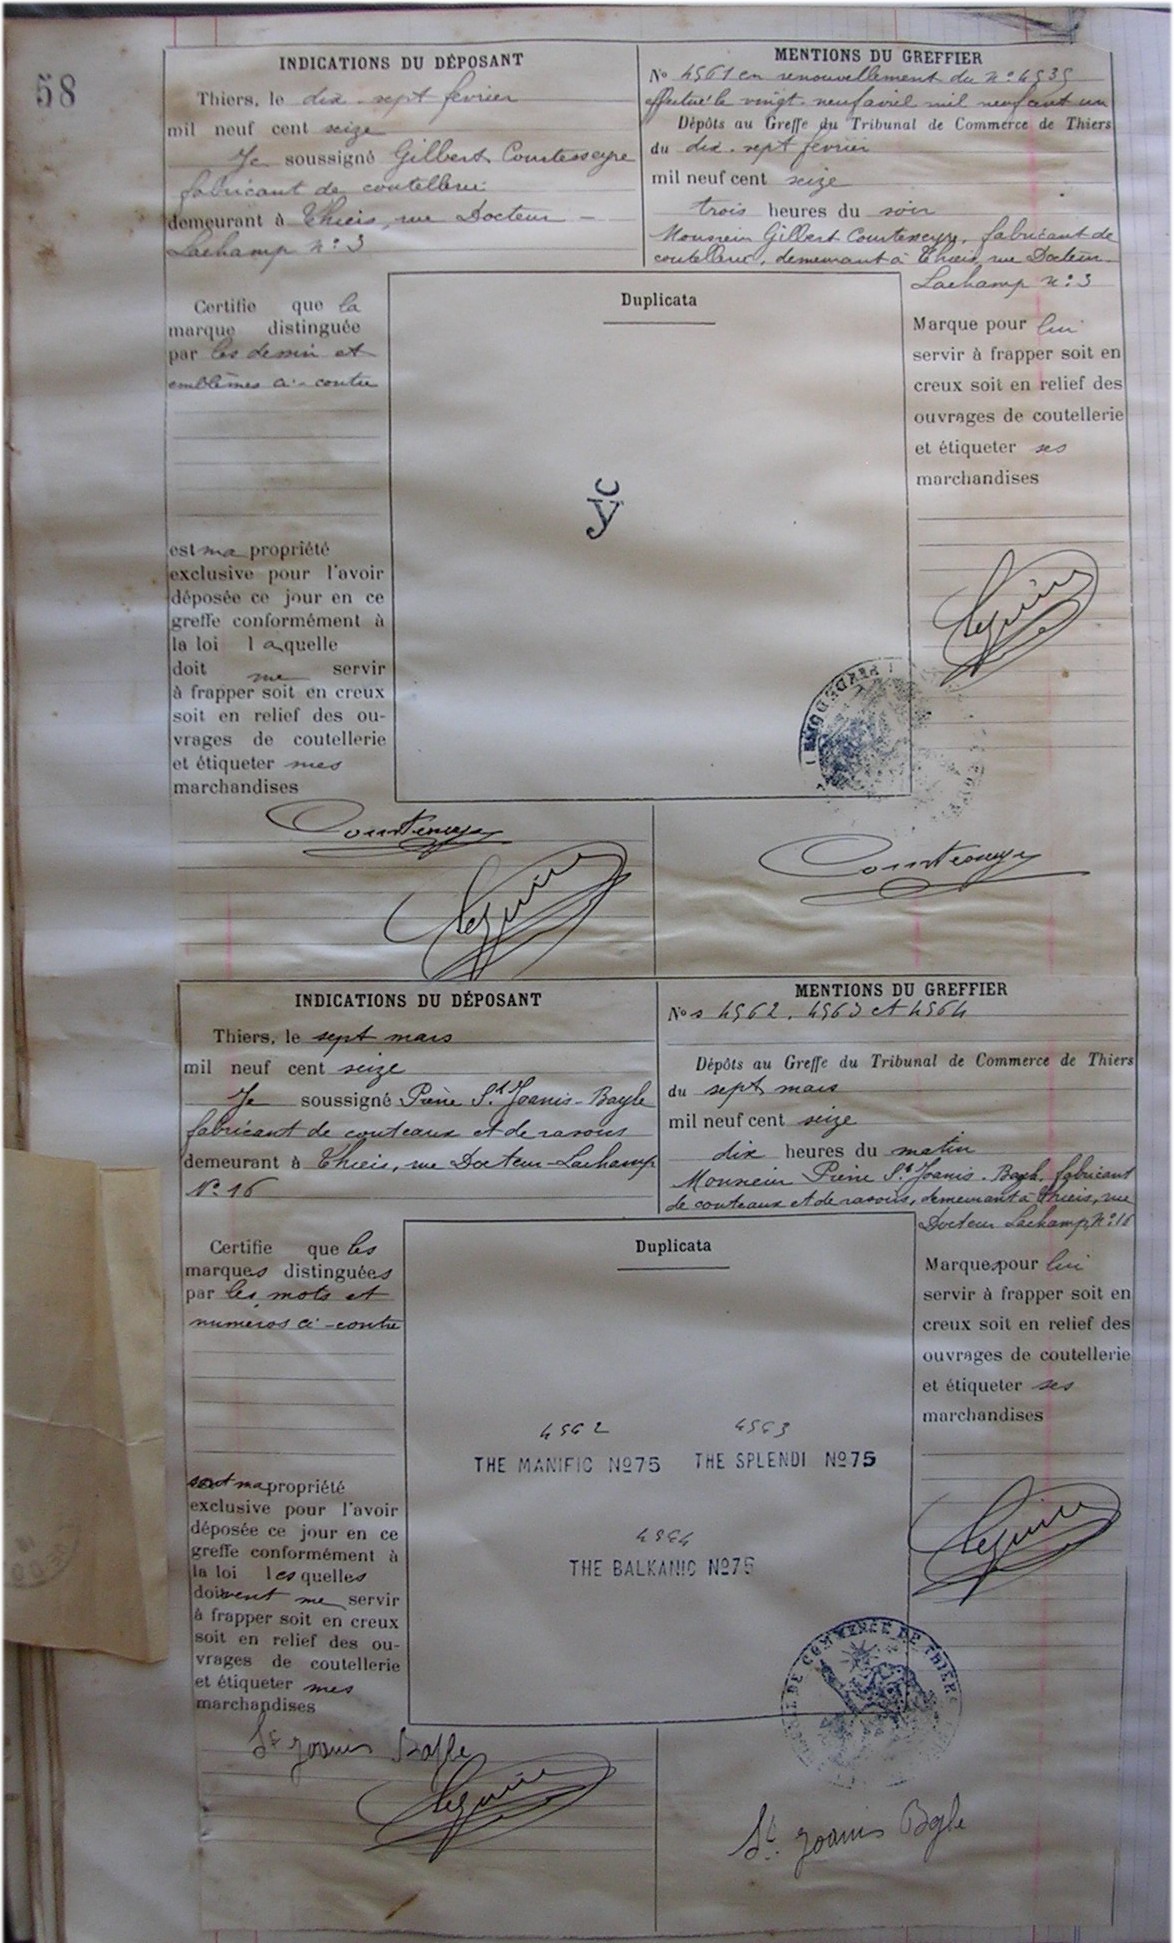 58
INDICATIONS DU DÉPOSANT
Thiers, le dix-sept février
mil neuf cent seize
Je soussigné Gilbert Courtesseyre
fabricant de coutellerie
demeurant à Thiers, rue Docteur
Lachamp n° 3
MENTIONS DU GREFFIER
No 4561 en renouvellement du n° 4535
effectué le vingt-neuf avril mil neuf cent un
Dépôts au Greffe du Tribunal de Commerce de Thiers
du dix-sept février
mil neuf cent seize
trois heures du soir
Monsieur Gilbert Courtesseyre, fabricant de
coutellerie, demeurant à Thiers, rue Docteur
Lachamp n° 3
Certifie que la
marque distinguée
par les dessin et
emblèmes ci-contre
est ma propriété
exclusive pour l'avoir
déposée ce jour en ce
greffe conformément à
la loi laquelle
doit me servir
à frapper soit en creux
soit en relief des ou-
vrages de coutellerie
et étiqueter mes
marchandises
Duplicata
c
y
Marque pour lui
servir à frapper soit en
creux soit en relief des
ouvrages de coutellerie
et étiqueter ses
marchandises
INDICATIONS DU DÉPOSANT
Thiers, le sept mars
mil neuf cent seize
Je soussigné Pierre St Joanis-Bayle
fabricant de couteaux et de rasoirs
demeurant à Thiers, rue Docteur-Lachamp
N° 16
MENTIONS DU GREFFIER
Nos 4562, 4563 et 4564
Dépôts au Greffe du Tribunal de Commerce de Thiers
du sept mars
mil neuf cent seize
dix heures du matin
Monsieur Pierre St Joanis-Bayle, fabricant
de couteaux et de rasoirs, demeurant à Thiers, rue
Docteur Lachamp, N° 16
Certifie que les
marques distinguées
par les mots et
numéros ci-contre
sont ma propriété
exclusive pour l'avoir
déposée ce jour en ce
greffe conformément à
la loi lesquelles
doivent me servir
à frapper soit en creux
soit en relief des ou-
vrages de coutellerie
et étiqueter mes
marchandises
Duplicata
4562 4563
THE MANIFIC No75 THE SPLENDI No75
4564
THE BALKANIC No75
Marques pour lui
servir à frapper soit en
creux soit en relief des
ouvrages de coutellerie
et étiqueter ses
marchandises
DE COMMERCE DE THIERS
St Joanis Bayle
St Joanis Bayle